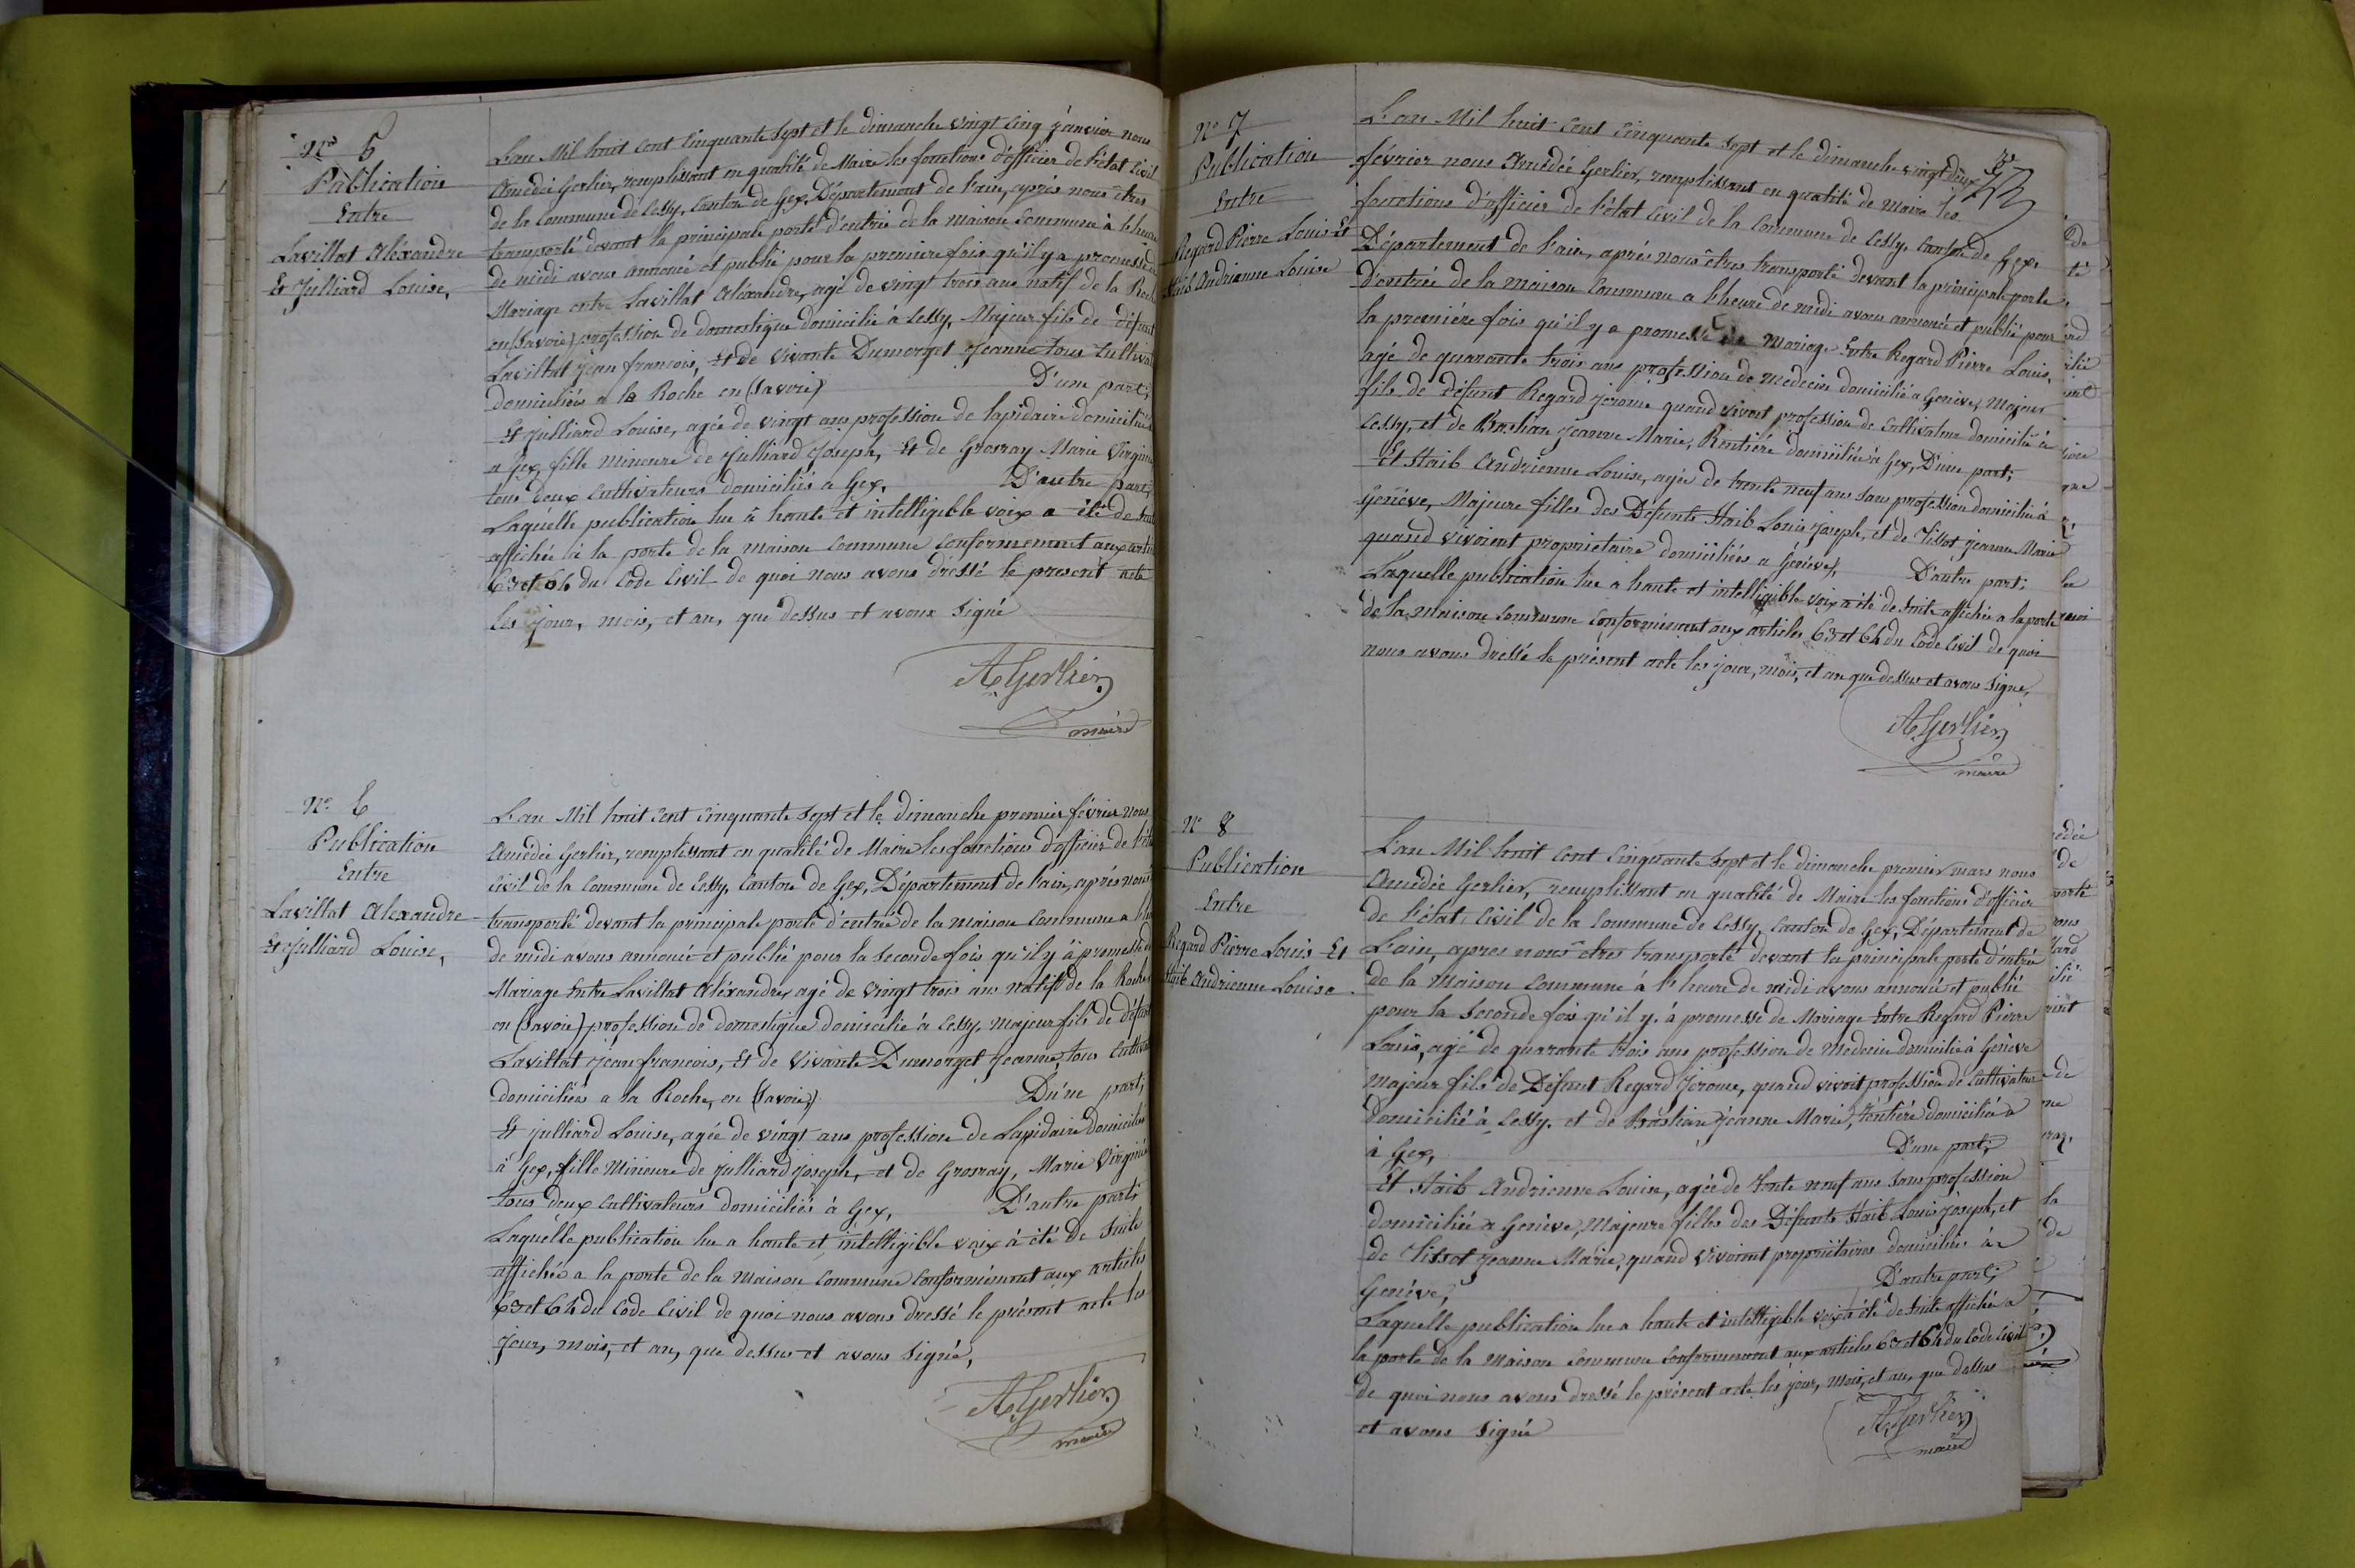 N° 5
Publication
Entre
Lavillat Aléxandre
Et Julliard Louise,
L'an Mil huit cent cinquante sept et le dimanche vingt cinq janvier nous
Amédée Gerlier, remplissant en qualité de Maire les fonctions d'officier de l'état civil
de la Commune de Cessy, Canton de Gex, Département de l'ain, après nous êtres
transporté devant la principale porte d'entrée de la maison Commune à l'heure
de midi avons annoncé et publié pour la premiere fois qu'il y a promesse de
Mariage entre Lavillat Aléxandre, agé de vingt trois ans natif de la Roche
en (Savoie) profession de domestique domicilié à Cessy, Majeur fils de défunt
Lavillat Jean françois, Et de vivante Dumorget Jeanne tous Cultiva
domiciliés a la Roche en (Savoie) D'une part;
Et Julliard Louise, agée de vingt ans profession de lapidaire domiciliée
a Gex, fille Mineure de Julliard Joseph, Et de Grosray Marie Virginie
tous deux Cultivateurs domiciliés a Gex, D'autre part;
Laquelle publication lue à haute et intelligible voix a été de suite
affichée à la porte de la maison Commune Conformement aux arti
63 et 64 du Code Civil de quoi nous avons dressé le present acte
les jour, mois, et an, que dessus et avons Signé
A Gerlier
maire
N° 6
Publication
Entre
Lavillat Alexandre
Et Julliard Louise,
L'an Mil huit cent cinquante sept et le dimanche premier février nous
Amédée Gerlier, remplissant en qualité de Maire les fonctions d'officier de l'éta
Civil de la Commune de Cessy, Canton de Gex, Département de l'ain, après nous
transporté devant la principale porte d'entrée de la maison Commune a l'he
de midi avons annoncé et publié pour la Seconde fois qu'il y à promesse de
Mariage Entre Lavillat Aléxandre, agé de vingt trois ans natif de la Roche
en (Savoie) profession de domestique domicilié à Cessy, majeur fils de défunt
Lavillat Jean francois, Et de Vivante Dumorget Jeanne, tous Cultivat
domiciliés a la Roche, en (Savoie) Du'ne part;
Et Julliard Louise, agée de vingt ans profession de Lapidaire domiciliée
à Gex, fille Mineure de Julliard Joseph, et de Grosray, Marie Virginie
tous deux Cultivateurs domiciliés à Gex, D'autre part;
Laquelle publication lue a haute et intelligible voix à été de Suite
affichée a la porte de la Maison Commune Conformément aux articles
63 et 64 du Code Civil de quoi nous avons dressé le présent acte les
jour, mois, et an, que dessus et avons Signé,
A Gerlier
maire
N° 7
Publication
Entre
Regard Pierre Louis Et
Staib Andrienne Louise
L'an Mil huit cent cinquante sept et le dimanche vingt deux
février nous Amédée Gerlier, remplissant en qualité de maire les
fonctions d'officier de l'état Civil de la Commune de Cessy, Canton de Gex,
Département de l'ain, après nous êtres transporté devant la principale porte
d'entrée de la maison Commune a l'heure de midi avons annoncé et publié pour
la première fois qu'il y a promesse de Mariage Entre Regard Pierre Louis,
agé de quarante trois ans profession de medecin domicilié a Genève, Majeur
fils de défunt Regard Jérome quand vivait profession de Cultivateur domicilié à
Cessy, et de Bastian Jeanne Marie, Rentière domiciliée à Gex, D'une part;
Et Staib Andrienne Louise, agée de trente neuf ans sans profession domiciliée à
Genève, Majeure filles des Défunts Staib Louis Joseph, et de Tissot Jeanne Marie
quand vivoient proprietaire domiciliés a Génève, D'autre part;
Laquelle publication lue a haute et intelligible voix a été de suite affichée a la porte
de la Maison Commune Conformément aux articles 63 et 64 du Code Civil de quoi
nous avons dressé le présent acte les jour, mois, et an que dessus et avons Signé,
A Gerlier
maire
N° 8
Publication
Entre
Regard Pierre Louis Et
Staib Andrienne Louise
L'an Mil huit cent cinquante sept et le dimanche premier mars nous
Amédée Gerlier, remplissant en qualité de Maire les fonctions d'officier
de l'état Civil de la Commune de Cessy, Canton de Gex, Département de
L'ain, apres nous êtres transporté devant la principale porte d'entrée
de la Maison Commune à l'heure de midi avons annoncé et publié
pour la Seconde fois qu'il y à promesse de Mariage Entre Regard Pierre
Louis, agé de quarante trois ans profession de Medecin domicilié à Genève
Majeur fils de Défunt Regard Jérome, quand vivoit profession de Cultivateur
domicilié à Cessy, et de Bastian Jeanne Marie, rentière domiciliée a
à Gex, D'une part;
Et Staib Andrienne Louise, agée de trente neuf ans sans profession
domiciliée a Genève, Majeure filles des Défunts Staib Louis Joseph, et
de Tissot Jeanne Marie, quand Vivoient propriétaires domiciliés à
Genève, D'autre part;
Laquelle publication lue a haute et intelligible voix a été de suite affichée a
la porte de la Maison Commune Conformement aux articles 63 et 64 du Code Civil
de quoi nous avons dressé le présent acte les jour, mois, et an, que dessus
et avons Signé
A Gerlier
maire